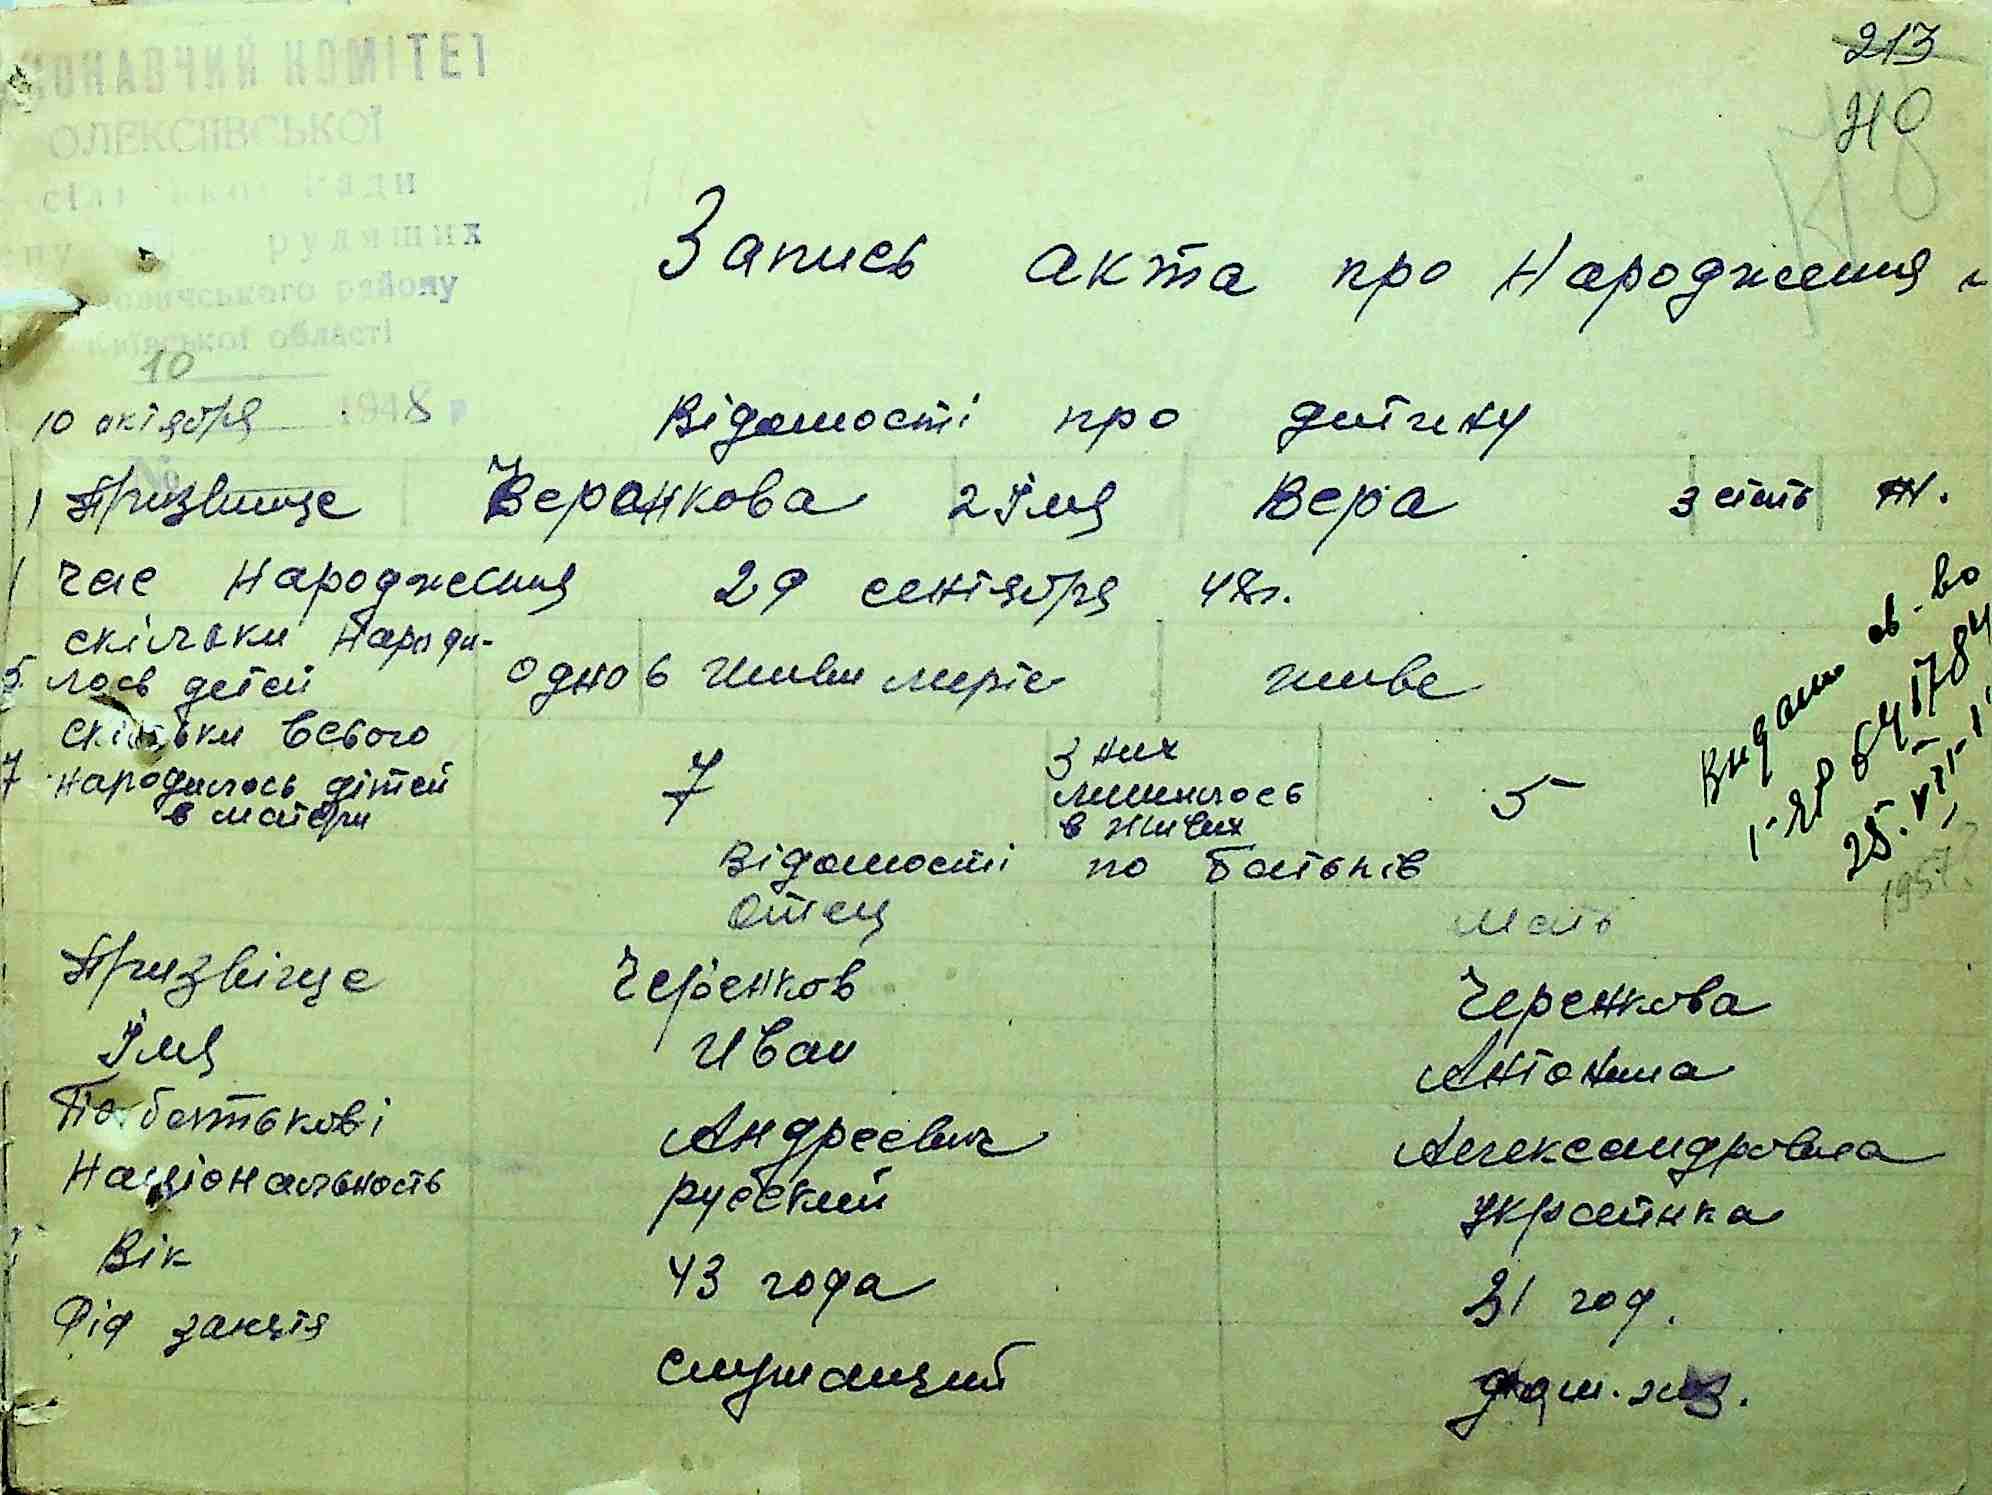 213
КОНАВЧИЙ КОМІТЕТ
ОЛЕКСІЇВСЬКОЇ
ради
рудящих
району
Київської області
10
10 октября 1948 р
№
Запись акта про Народження
Відомості про дитину
1 Призвище Черенкова 2 Імя Вера 3 стать ж.
час Народження 29 сентября 48г.
5 скільки Народи-
лось детей одно 6 живи мертв живе
7 скільки всього
народилось дітей
в матери 7 з них
лишилось
в живих 5
Видано св-во
І-ЯР 641784
25.VII-
1957г
Відомості по батьків
Отец Мать
Призвіще Черенков Черенкова
Імя Иван Антонина
По батькові Андреевич Александровна
Національность русский Украинка
Вік 43 года 31 год.
Рід занятія служащий дом. хоз.